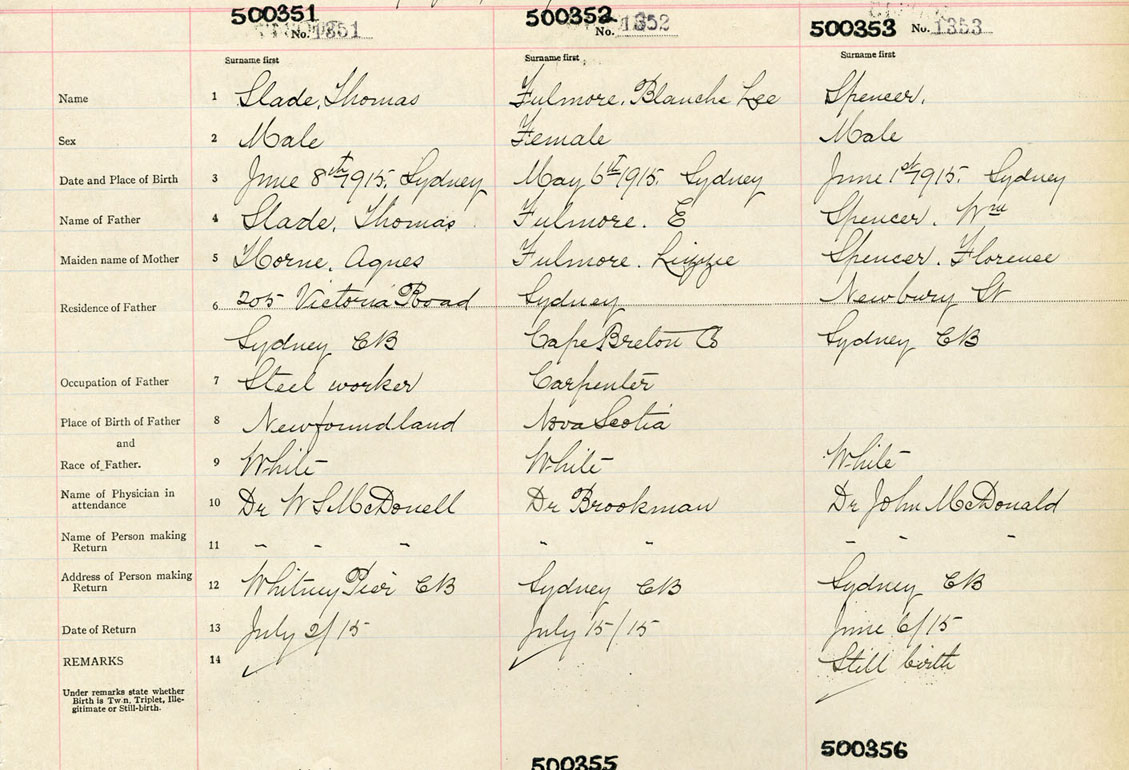 500351 500352 500353
No. 1351 No. 1352 No. 1353
Surname first Surname first Surname first
Name 1 Slade, Thomas Fulmore, Blanche Lee Spencer,
Sex 2 Male Female Male
Date and Place of Birth 3 June 8th 1915, Sydney May 6th 1915, Sydney June 1st 1915, Sydney
Name of Father 4 Slade, Thomas Fulmore. E Spencer. Wm
Maiden name of Mother 5 Horne, Agnes Fulmore. Lizzie Spencer. Florence
Residence of Father 6 205 Victoria Road Sydney Newbury St
Sydney CB Cape Breton Co Sydney CB
Occupation of Father 7 Steel worker Carpenter
Place of Birth of Father 8 Newfoundland Nova Scotia
and
Race of Father. 9 White White White
Name of Physician in attendance 10 Dr W S McDonell Dr Brookman Dr John McDonald
Name of Person making Return 11 " " " " " " " "
Address of Person making Return 12 Whitney Pier CB Sydney CB Sydney CB
Date of Return 13 July 2/15 July 15/15 June 6/15
REMARKS 14 Still birth
Under remarks state whether
Birth is Twin, Triplet, Ille-
gitimate or Still-birth.
500355 500356